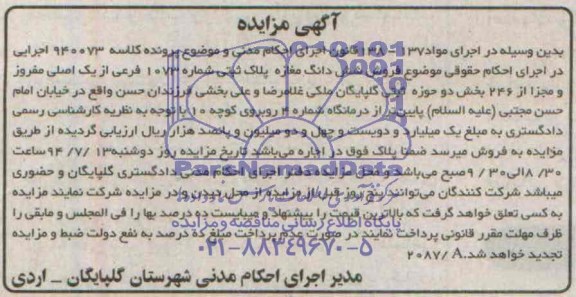 آگهی مزایده
بدین وسیله در اجرای مواد ۱۳۷ - ۱۳۸ قانون اجرای احکام مدنی و موضوع پرونده کلاسه ۹۴۰۰۷۳ اجرایی
در اجرای احکام حقوقی موضوع فروش شش دانگ مغازه پلاک ثبتی شماره ۱۰۷۳ فرعی از یک اصلی مفروز
و مجزا از ۲۴۶ بخش دو حوزه ثبتی گلپایگان ملکی غلامرضا و علی بخشی فرزندان حسن واقع در خیابان امام
حسن مجتبی (علیه السلام) پایین تر از درمانگاه شماره ۴ روبروی کوچه ۱۰ با توجه به نظریه کارشناسی رسمی
دادگستری به مبلغ یک میلیارد و دویست و چهل و دو میلیون و پانصد هزار ریال ارزیابی گردیده از طریق
مزایده به فروش میرسد ضمنا پلاک فوق در اجاره می‌باشد تاریخ مزایده روز دوشنبه ۱۳ /۷/ ۹۴ ساعت
۳۰ /۸ الی ۳۰ /۹ صبح می‌باشد و محل مزایده دفتر اجرای احکام مدنی دادگستری گلپایگان و حضوری
میباشد شرکت کنندگان می‌توانند پنج روز قبل از مزایده از محل دیدن و در مزایده شرکت نمایند مزایده
به کسی تعلق خواهد گرفت که بالاترین قیمت را پیشنهاد و میبایست ده درصد بها را فی المجلس و مابقی را
ظرف مهلت مقرر قانونی پرداخت نمایند در صورت عدم پرداخت مبلغ ده درصد به نفع دولت ضبط و مزایده
تجدید خواهد شد. ۲۰۸۷/A
مدیر اجرای احکام مدنی شهرستان گلپایگان ــ اردی
ParsNamadData
پایگاه اطلاع رسانی مناقصه و مزایده
۰۲۱-۸۸۳۴۹۶۷۰-۵